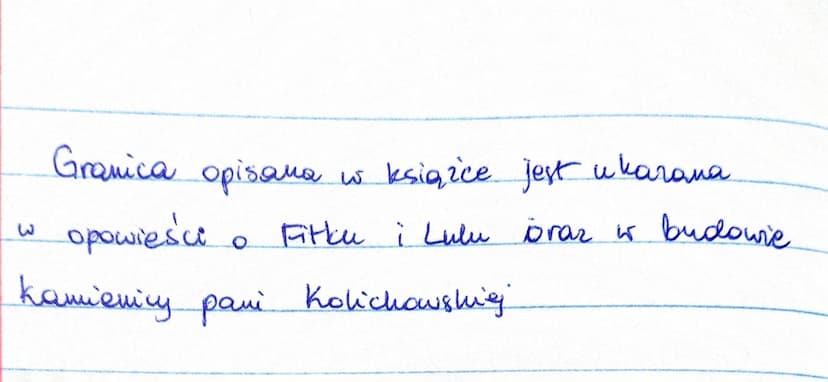 Granica opisana w książce jest ukazana
w opowieści o Fitku i Lulu oraz w budowie
kamienicy pani Kolichowskiej